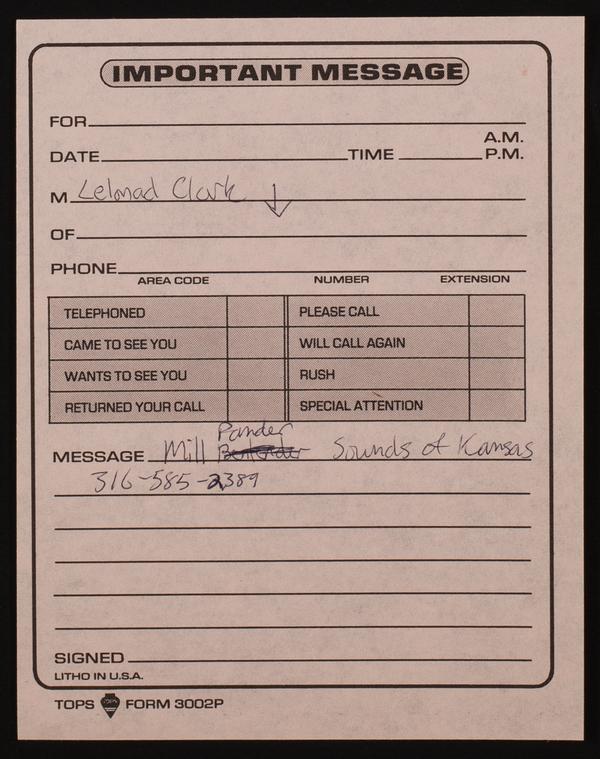 IMPORTANT MESSAGE
FOR
A.M.
DATE TIME P.M.
M Lelonad Clark
OF
PHONE
AREA CODE NUMBER EXTENSION
TELEPHONED PLEASE CALL
CAME TO SEE YOU WILL CALL AGAIN
WANTS TO SEE YOU RUSH
RETURNED YOUR CALL SPECIAL ATTENTION
Pander
MESSAGE Mill Sounds of Kansas
316-585-2389
SIGNED
LITHO IN U.S.A.
TOPS FORM 3002P